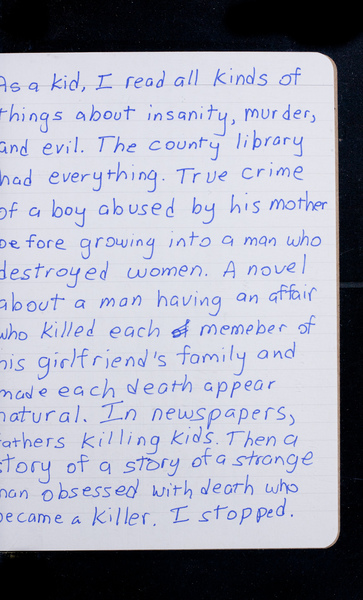 As a kid, I read all kinds of
things about insanity, murder,
and evil. The county library
had everything. True crime
of a boy abused by his mother
before growing into a man who
destroyed women. A novel
about a man having an affair
who killed each memeber of
his girlfriend's family and
made each death appear
natural. In newspapers,
fathers killing kids. Then a
story of a story of a strange
man obsessed with death who
became a killer. I stopped.